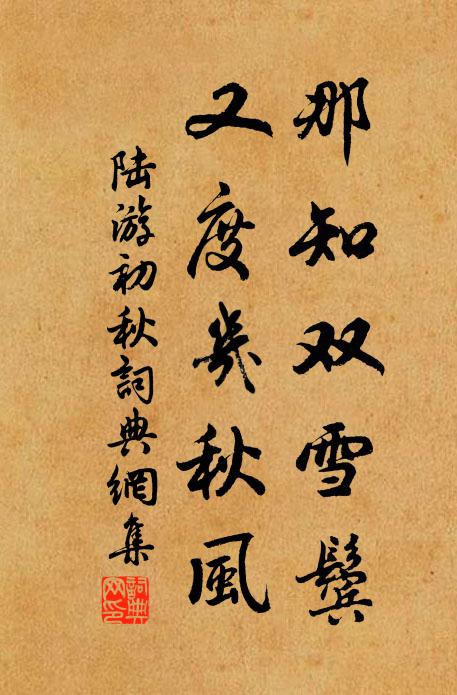 那知双雪鬓
又度幾秋風
陆游初秋詞典網集
詞典网印